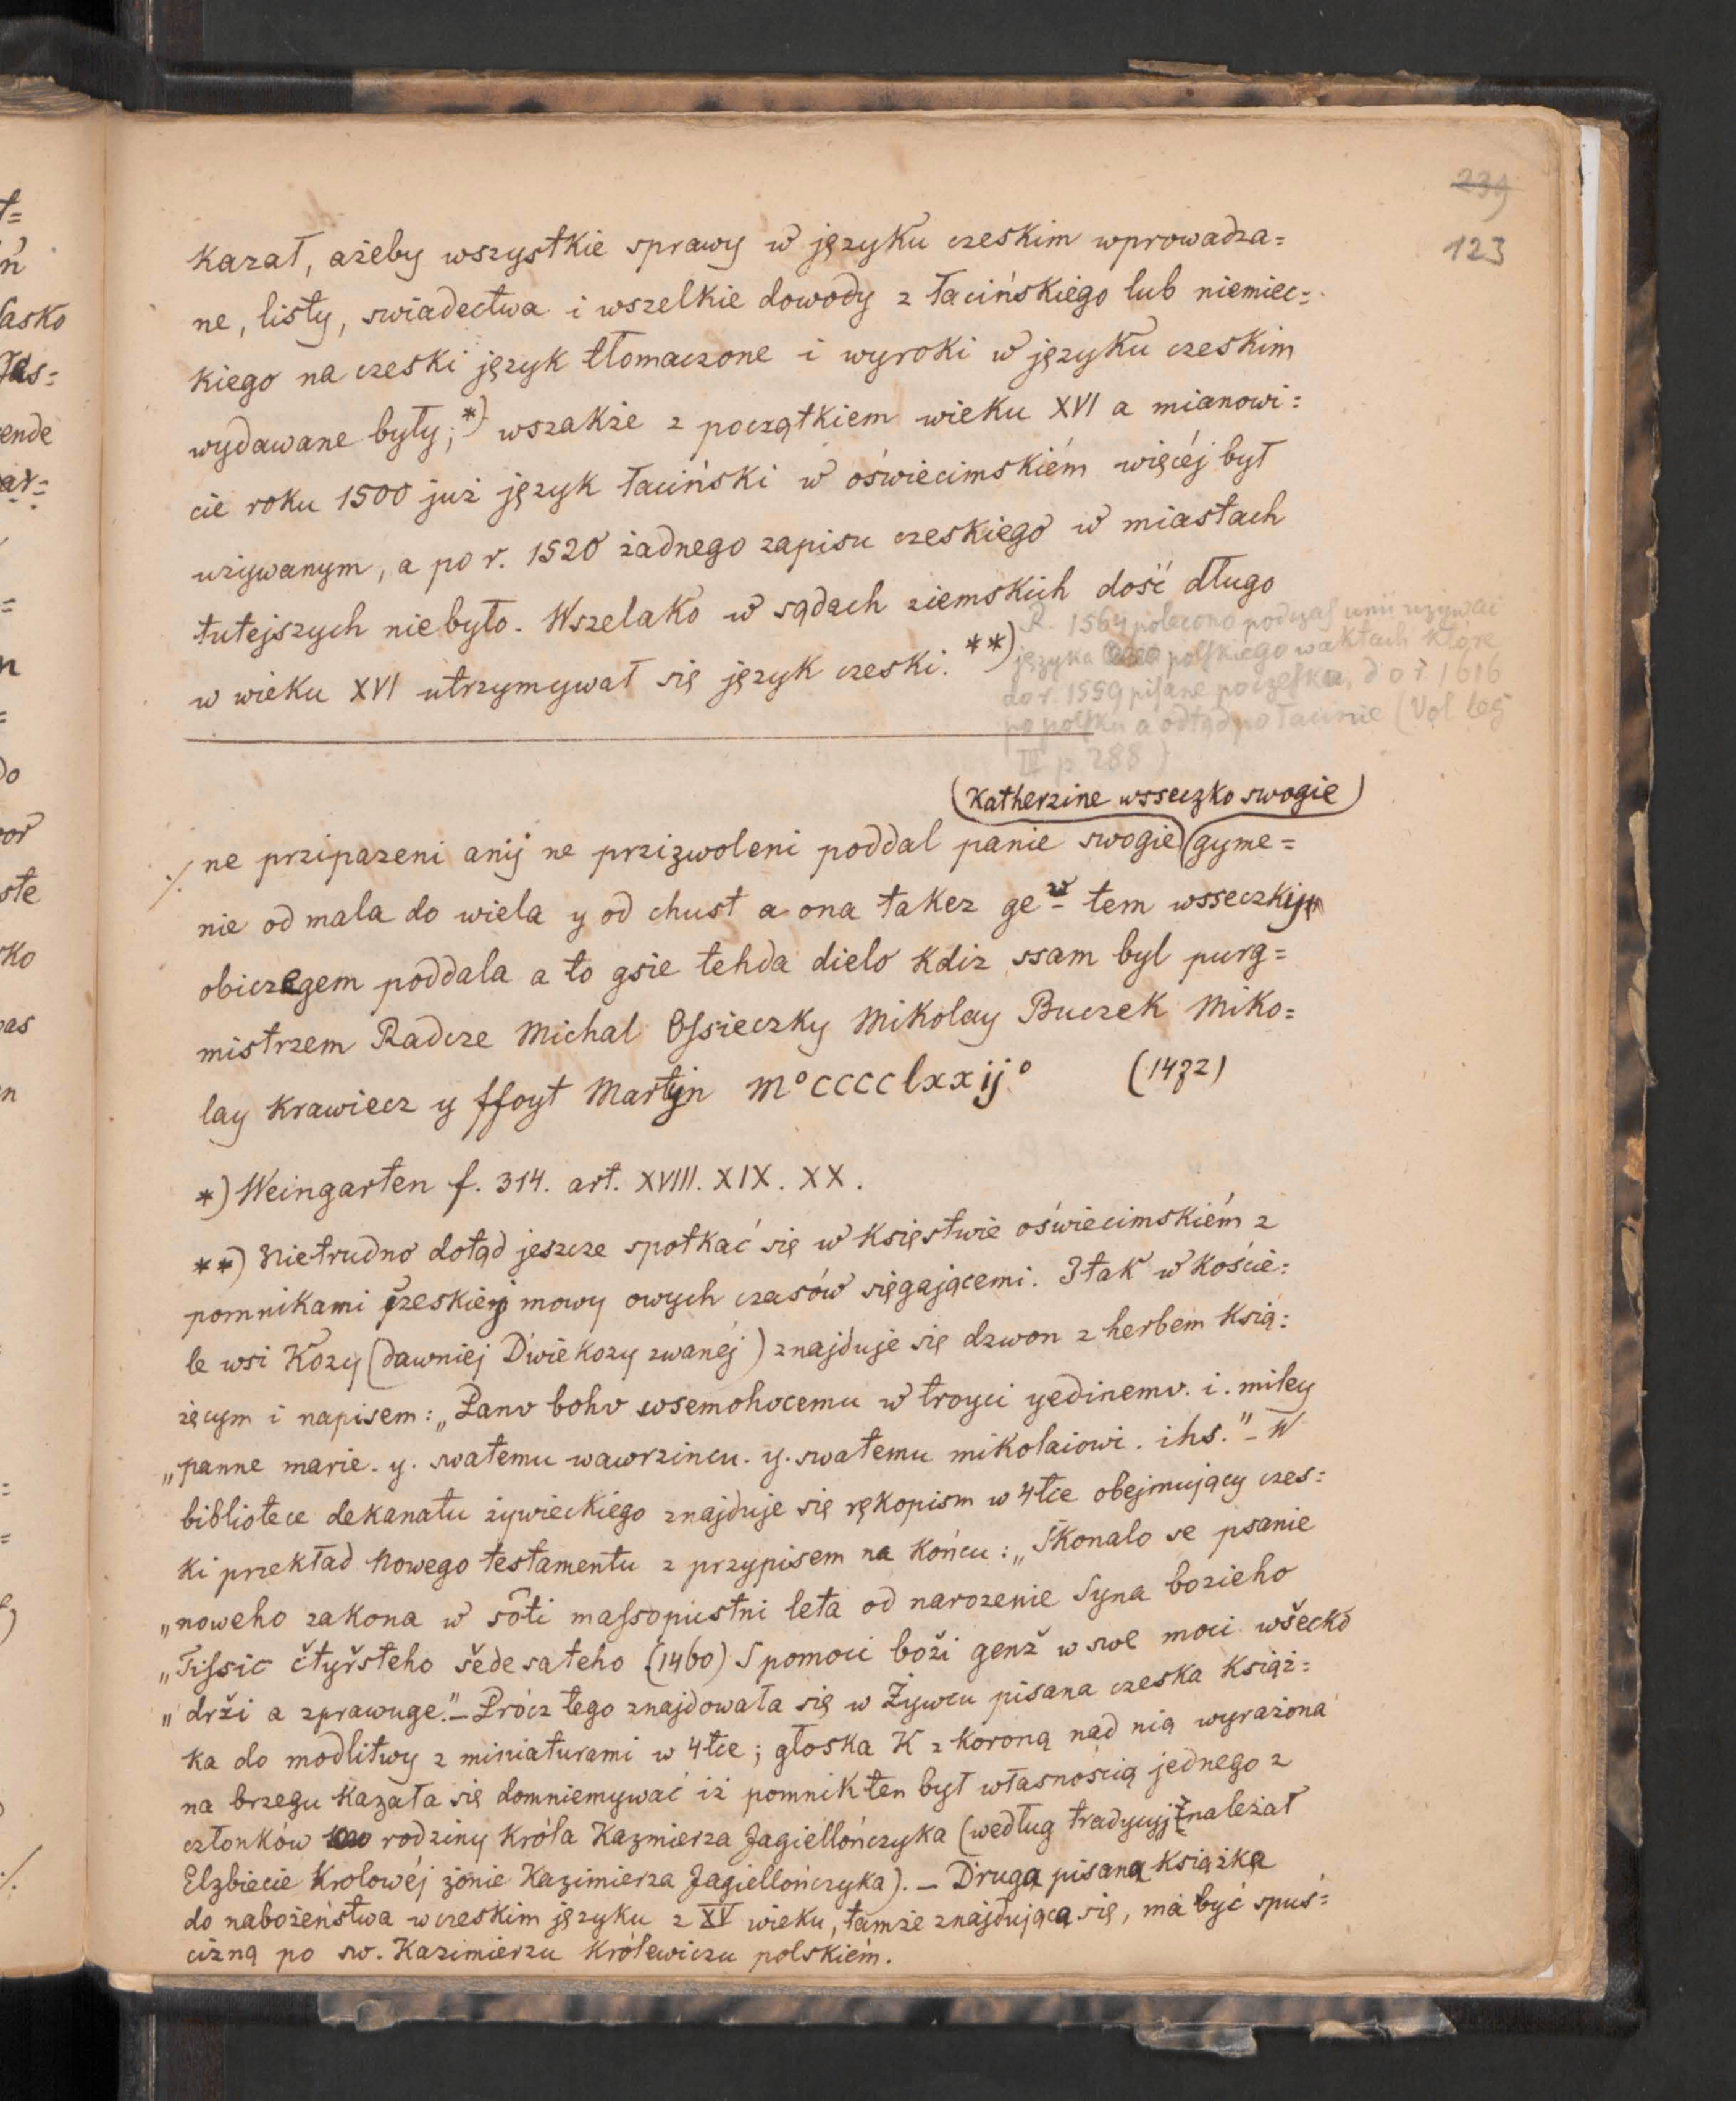 239
123
kazał, ażeby wszystkie sprawy w języku czeskim wprowadza=
ne, listy, swiadectwa i wszelkie dowody z łacińskiego lub niemiec=
kiego na czeski język tłomaczone i wyroki w języku czeskim
wydawane były;*) wszakże z początkiem wieku XVI a mianowi=
cie roku 1500 już język łaciński w oświecimskiém więcéj był
uzywanym, a po r. 1520 żadnego zapisu czeskiego w miastach
tutejszych nie było. Wszelako w sądach ziemskich dość długo
w wieku XVI utrzymywał się język czeski. **)
R. 1564 polecono podczas unii uzywać
języka polskiego w aktach które
do r. 1559 pisane po czesku, do r. 1616
po polsku a odtąd po łacinie (Vol leg
III p 288)
(Katherzine wsseczko swogie)
./. ne przipazeni anij ne przizwoleni poddal panie swogie (gyme=
nie od mala do wiela y od chust a ona takez ge tem wsseczkijm
obiczegem poddala a to gsie tehda dielo kdiz ssam byl purg=
mistrzem Radcze Michal Ossieczky Mikolay Buczek Miko=
lay Krawiecz y ffoyt Martijn m°cccclxxij° (1472)
*) Weingarten f. 314. art. XVIII. XIX. XX.
**) Nietrudno dotąd jeszcze spotkać się w Księstwie oświecimskiém z
pomnikami czeskiej mowy owych czasów sięgającemi. I tak w koście=
le wsi Kozy (dawniej Dwie kozy zwanéj) znajduje się dzwon z herbem ksią=
żęcym i napisem: „Panv bohv wsemohocemu w troyci yedinemv. i. miley
„panne marie. y. swatemu wawrzincu. y. swatemu mikolaiowi. ihs." – W
bibliotece dekanatu żywieckiego znajduje się rękopism w 4tce obejmujący czes=
ki przekład Nowego testamentu z przypisem na końcu: „Skonalo se psanie
„noweho zakona w sôti massopustni leta od narozenie Syna bozieho
„Tissic čtyřsteho šedesateho (1460) S pomoci boži genž w swe moci wšecko
„drži a zprawuge." – Prócz tego znajdowała się w Żywcu pisana czeska książ=
ka do modlitwy z miniaturami w 4tce; głoska K z koroną nad nią wyrażona
na brzegu kazała się domniemywać iż pomnik ten był własnością jednego z
członków rodziny króla Kazmierza Jagiellończyka (według tradycyj należał
Elzbiecie Krolowéj żonie Kazimierza Jagiellończyka). – Druga pisana książka
do nabożeństwa w czeskim języku z XV wieku, tamże znajdująca się, ma być spuś=
cizną po sw. Kazimierzu Królewiczu polskiém.